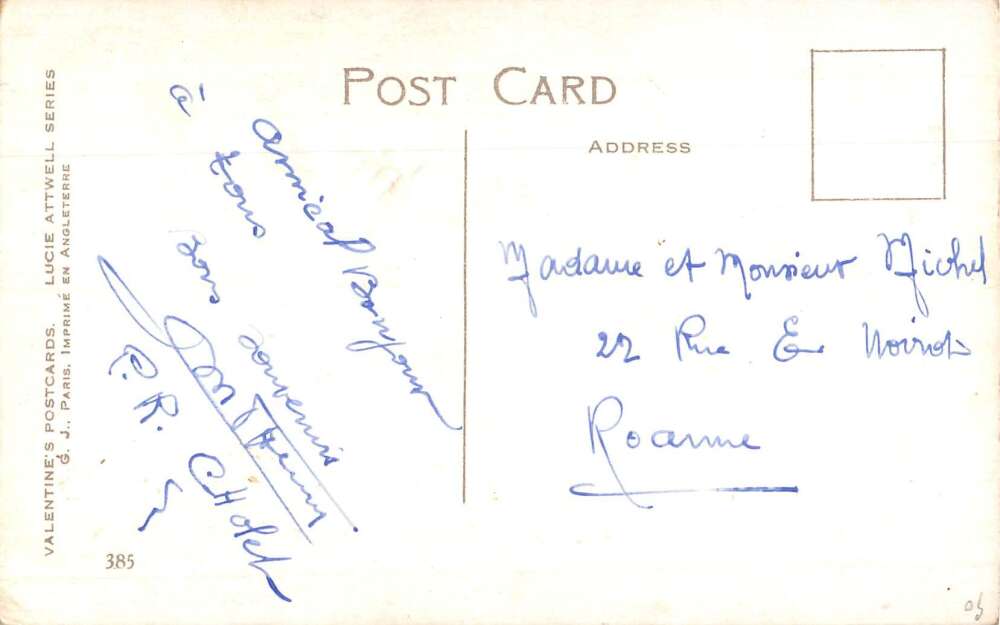 POST CARD
ADDRESS
VALENTINE'S POSTCARDS. LUCIE ATTWELL SERIES
G. J., PARIS, IMPRIMÉ EN ANGLETERRE
385
amical Bonjour
à tous
Bons souvenirs
P.R. CHolet
Madame et Monsieur Michel
22 Rue E Noirot
Roanne